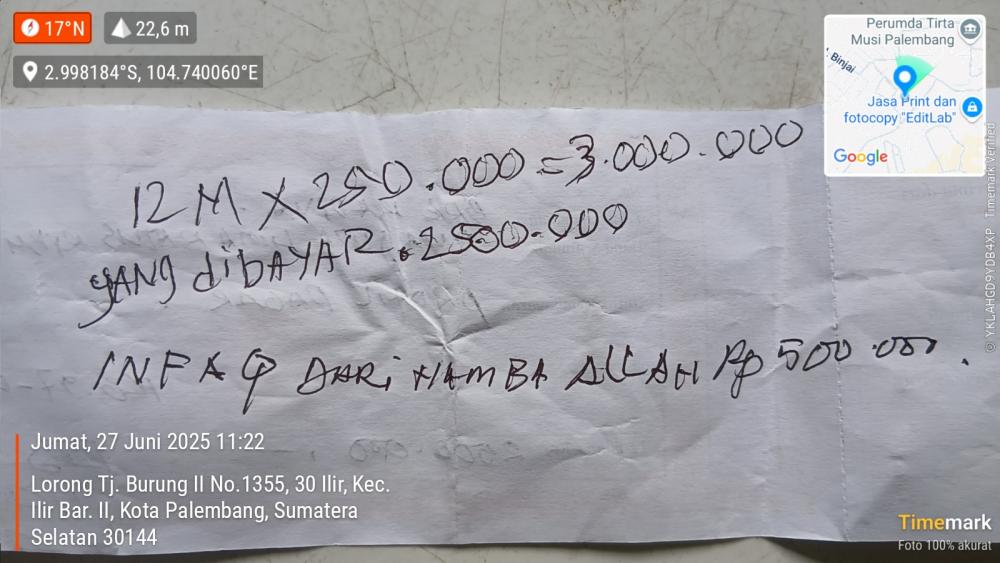 17°N
22,6 m
2.998184°S, 104.740060°E
Perumda Tirta
Musi Palembang
. Binjai
Jasa Print dan
fotocopy "EditLab"
Google
12 M X 250.000 = 3.000.000
YANG diBAYAR . 2500.000
INFAQ DARi HAMBA ALLAH Rp 500.000.
Jumat, 27 Juni 2025 11:22
Lorong Tj. Burung II No.1355, 30 Ilir, Kec.
Ilir Bar. II, Kota Palembang, Sumatera
Selatan 30144
Timemark
Foto 100% akurat
© YKLAHGD9YDB4XP Timemark Verified